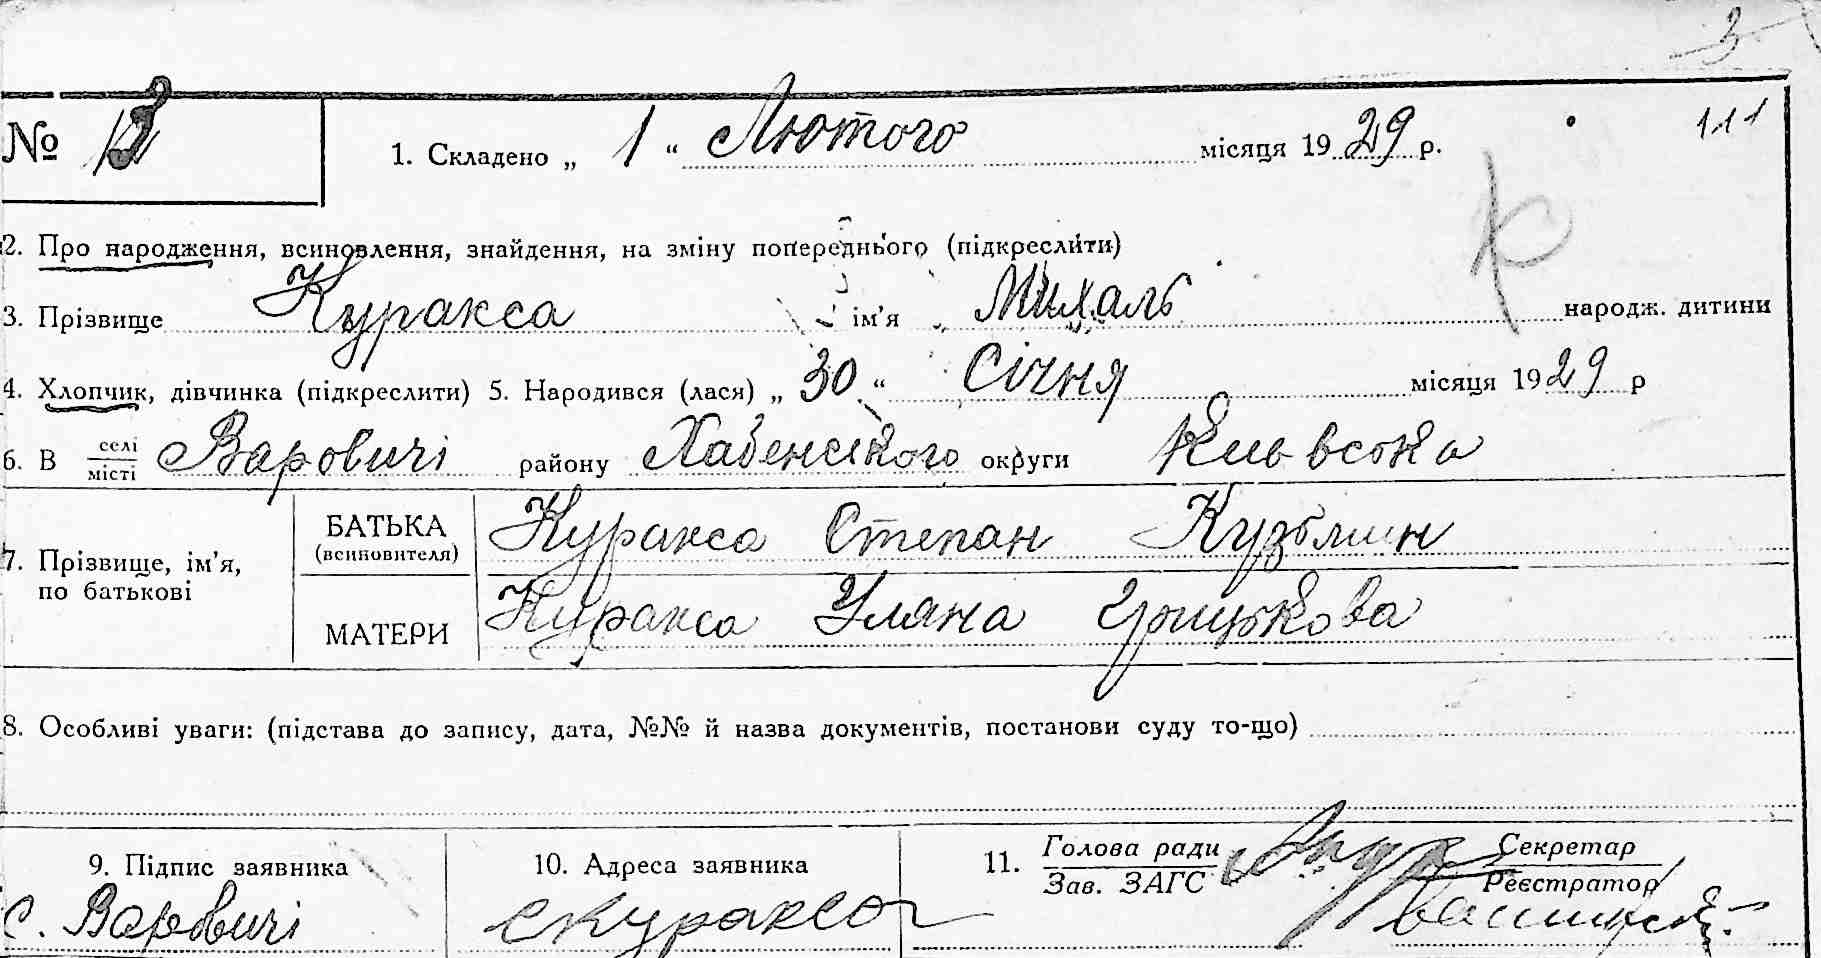 3
№ 1. Складено „ 1 “ Лютого місяця 1929 р. 111
К
2. Про народження, всиновлення, знайдення, на зміну попереднього (підкреслити)
3. Прізвище Куракса ім’я Михаль народж. дитини
4. Хлопчик, дівчинка (підкреслити) 5. Народився (лася) „ 30 “ Січня місяця 1929 р
6. В селі місті Варовичі району Хабенського округи Київська
7. Прізвище, ім’я, по батькові
БАТЬКА (всиновителя) Куракса Степан Кузьмин
МАТЕРИ Куракса Уляна Грицькова
8. Особливі уваги: (підстава до запису, дата, №№ й назва документів, постанови суду то-що)
9. Підпис заявника 10. Адреса заявника 11. Голова ради Секретар
Зав. ЗАГС Реєстратор
с. Варовичі СКуракса